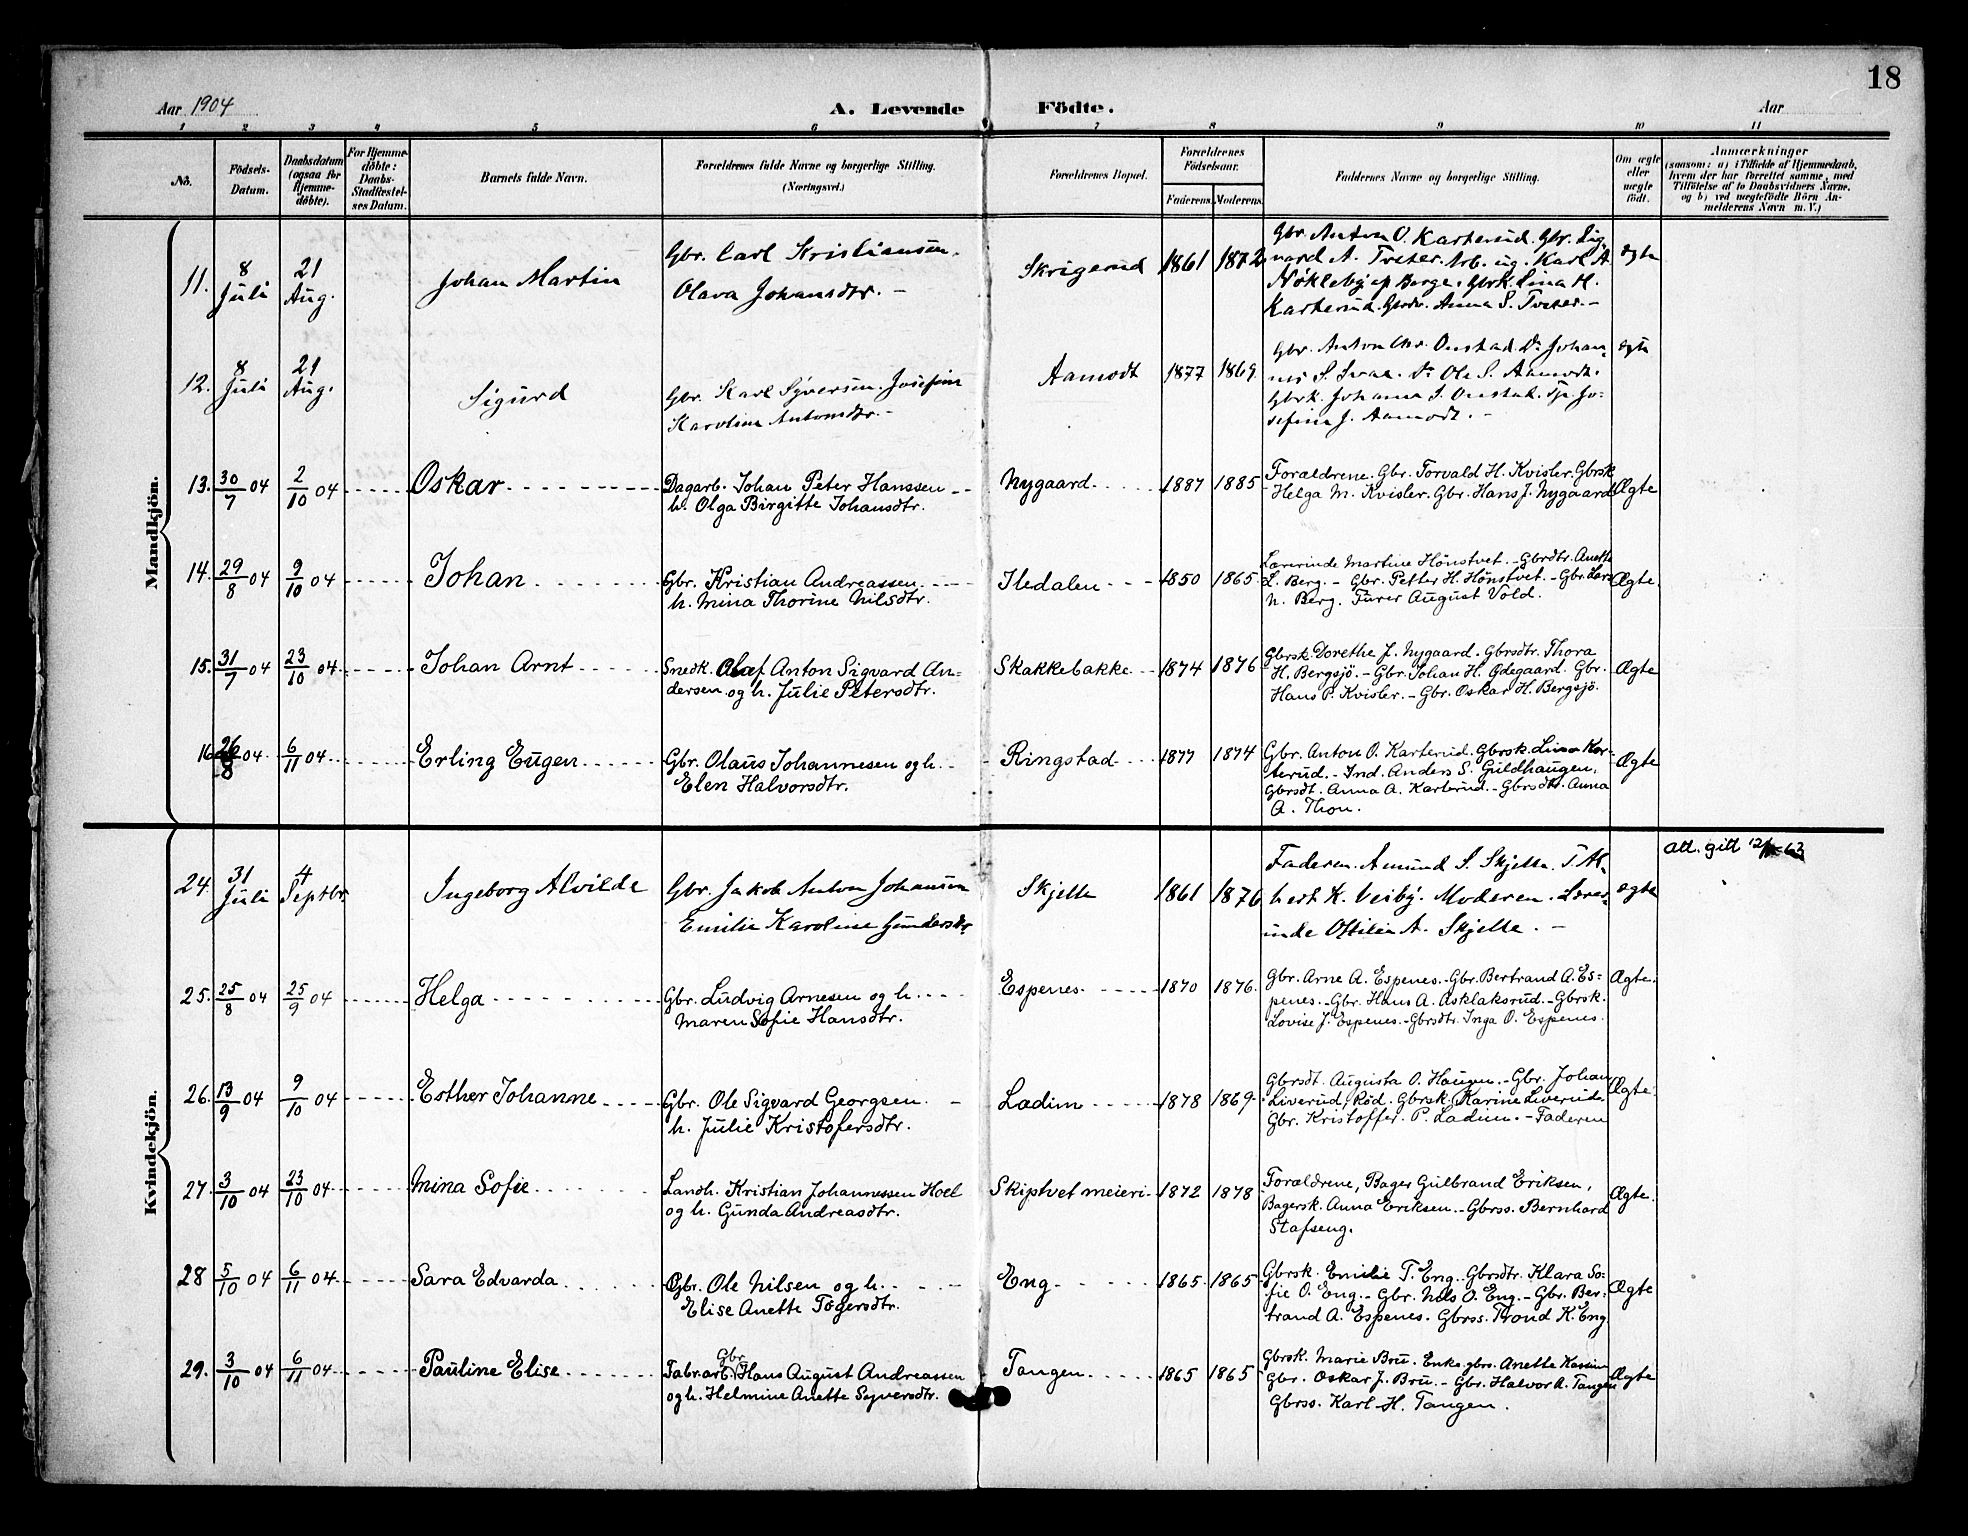 18
Aar 1904 A. Levende Födte. Aar
1 2 3 4 5 6 7 8 9 10 11
No. Födsels-Datum. Daabsdatum (ogsaa for Hjemmedöbte). For Hjemmedöbte: Daabs-Stadfæstelses Datum. Barnets fulde Navn. Forældrenes fulde Navne og borgerlige Stilling. (Næringsvei.) Forældrenes Bopæl. Forældrenes Födselsaar. Faderens. Moderens. Faddernes Navne og borgerlige Stilling. Om ægte eller uægte födt. Anmærkninger (saasom: a) i Tilfælde af Hjemmedaab, hvem der har forrettet samme, med Tilföielse af to Daabsvidners Navne. og b) ved uægtefödte Börn Anmelderens Navn m. V.)
Mandkjön.
11. 8 Juli 21 Aug. Johan Martin Gbr. Carl Kristiansen. Skrigerud 1861 1872 Gbr. Anton O. Karterud. Gbr. Sig-
Olava Johansdtr. – vard A. Tveter. Arb. ug. Karl A ægte
Nöklebÿ af Berge. Gbrk. Lina H.
Karterud. Gbrdr. Anna S. Tveter. –
12. 8 Juli 21 Aug. Sigurd Gbr. Karl Syversen. Josefine Aamodt 1877 1869 Gbr. Anton Chr. Onstad. Do Johan- ægte
Karoline Antonsdtr. – nes S. Do Ole S. Aamodt.
Gbrk. Johanna S. Onstad. Tje Jo-
sefine J. Aamodt. –
13. 30/7 04 2/10 04 Oskar Dagarb. Johan Peter Hanssen Nygaard 1887 1885 Forældrene. Gbr. Torvald H. Kvisler. Gbrsk
h. Olga Birgitte Johansdtr. Helga M. Kvisler. Gbr. Hans J. Nygaard Ægte
14. 29/8 04 9/10 04 Johan Gbr. Kristian Andreassen Iledalen 1850 1865 Lærerinde Martine Hönstvet. – Gbrdtr. Anette
h. Mina Thorine Nilsdtr. L. Berg. – Gbr. Petter H. Hönstvet. – Gbr. Lars Ægte.
N. Berg. Furer August Vold.
15. 31/7 04 23/10 04 Johan Arnt Snedk. Olaf Anton Sigvard An- Skakkebakke 1874 1876 Gbrsk. Dorethe J. Nygaard. Gbrsdtr. Thora
dersen og h. Julie Petersdtr. H. Bergsjö. – Gbr. Johan H. Ödegaard. Gbr. Ægte
Hans P. Kvisler. – Gbr. Oskar H. Bergsjö.
16 26/8 04 6/11 04 Erling Eugen Gbr. Olaus Johannesen og h. Ringstad 1877 1874 Gbr. Anton O. Karterud. Gbrsk. Lina Kar-
Elen Halvorsdtr. terud. – Ind. Anders S. Guldhaugen. Ægte
Gbrsdt. Anna A. Karterud. – Gbrsdtr. Anna
A. Thon.
Kvindekjön.
24. 31 Juli 4 Septbr. Ingeborg Alvilde Gbr. Jakob Anton Johansen Skjelle 1861 1876 Faderen. Amund S. Skjelle. T. Al- att. gitt 12/ -63
Emilie Karoline Gundersdtr bert K. Veiby. Moderen. Lærer- ægte
inde Ottilia A. Skjelle. –
25. 25/8 04 25/9 04 Helga Gbr. Ludvig Arnesen og h. Espenes 1870 1876 Gbr. Arne A. Espenes. – Gbr. Bertrand A. Es- Ægte.
Maren Sofie Hansdtr. penes. – Gbr. Hans A. Asklaksrud. – Gbrsk.
Lovise J. Espenes. – Gbrsdtr. Inga O. Espenes.
26. 13/9 04 9/10 04 Esther Johanne Gbr. Ole Sigvard Georgsen. Ladim 1878 1869 Gbrsdt. Augusta O. Haugen. – Gbr. Johan
h. Julie Kristofersdtr. Liverud, Röd. Gbrsk. Karine Liverud Ægte.
Gbr. Kristoffer. P. Ladim. – Faderen
27. 3/10 04 23/10 04 Mina Sofie Landh. Kristian Johannessen Hoel Skiptvet meieri 1872 1878 Forældrene, Bager Gulbrand Eriksen,
og h. Gunda Andreasdtr. Bagersk. Anna Eriksen. – Gbrss. Bernhard Ægte.
Stafseng.
28 5/10 04 6/11 04 Sara Edvarda Gbr. Ole Nilsen og h. Eng 1865 1865 Gbrsk. Emilie T. Eng. Gbrsdtr. Klara So-
Elise Anette Tögersdtr. fie O. Eng. – Gbr. Nils O. Eng. – Gbr. Ber- Ægte
trand A. Espenes. Gbrss. Trond K. Eng
29. 3/10 04 6/11 04 Pauline Elise Gbr Fabr. arb. Hans August Andreassen Tangen 1865 1865 Gbrsk. Marie Bru. Enke gbrs. Anette
og h. Helmine Anette Syversdtr. Gbr. Oskar J. Bru. – Gbr. Halvor A. Tangen Ægte
Gbrss. Karl H. Tangen.